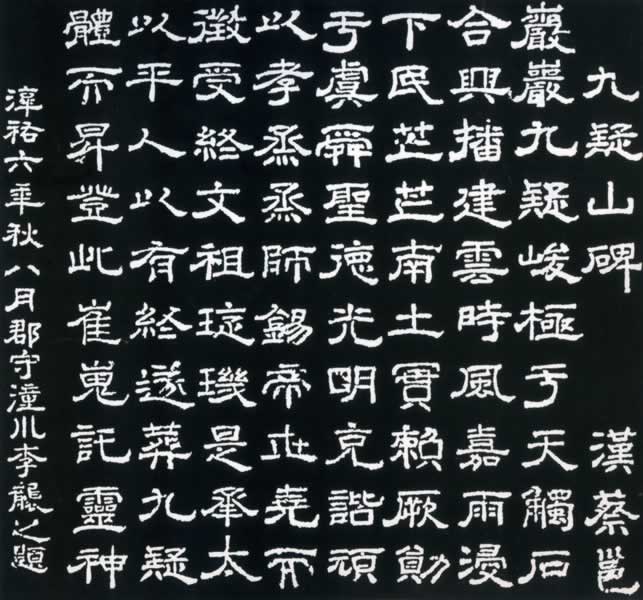 九疑山碑 漢蔡邕
巖巖九疑峻極于天觸石
合興播建雲時風嘉雨浸
下民芒芒南土實賴厥勛
于虞舜聖德光明克諧頑
以孝烝烝師錫帝世堯而
徵受終文祖琁璣是承太
以平人以有終遂葬九疑
體而昇登此崔嵬託靈神
淳祐六年秋八月郡守潼川李襲之題